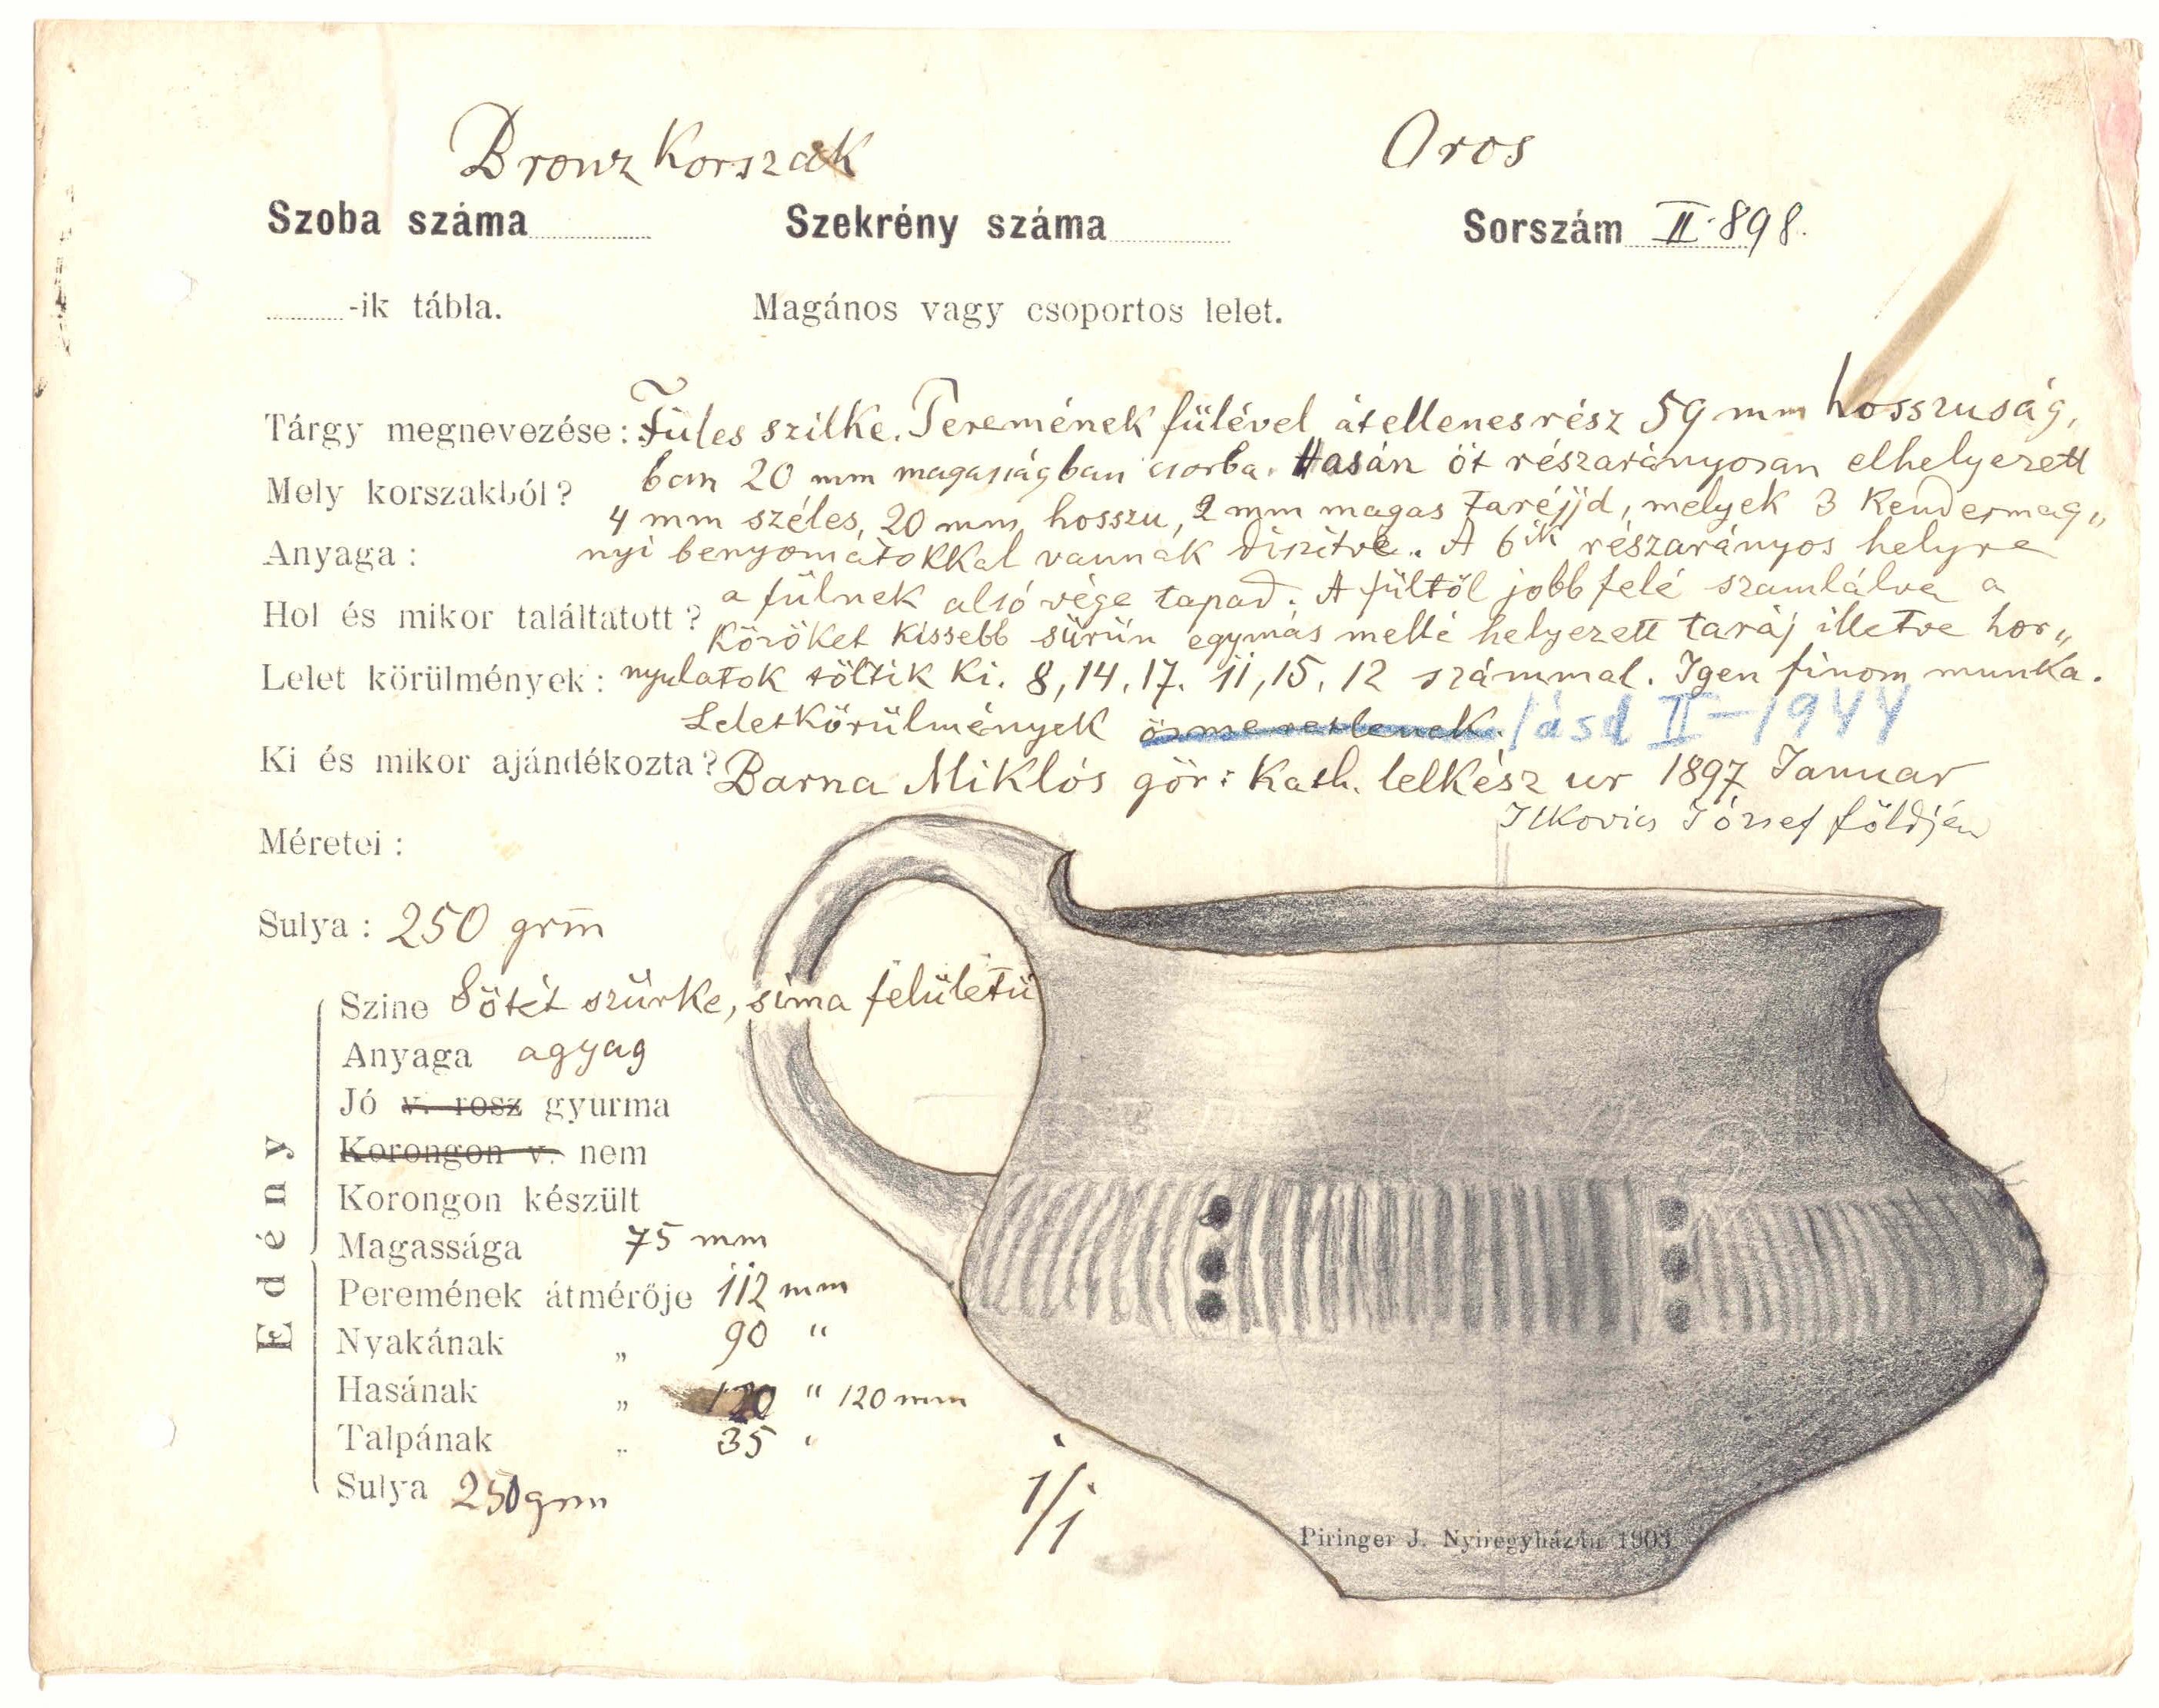 Bronz Korszak
Oros
Szoba száma
Szekrény száma
Sorszám II.898.
-ik tábla.
Magános vagy csoportos lelet.
Tárgy megnevezése: Füles szilke. Peremének fülével átellenes rész 59 mm hosszuság,
ban 20 mm magasságban csorba. Hasán öt részarányosan elhelyezett
Mely korszakból?
4 mm széles, 20 mm hosszu, 2 mm magas taréjjd, melyek 3 Kendermag„
Anyaga :
nyi benyomatokkal vannak diszitve. A 6ik részarányos helyre
a fülnek alsó vége tapad. A fültöl jobb felé szamlálva a
Hol és mikor találtatott ?
Köröket Kissebb sürün egymás mellé helyezett taráj illetve hor„
Lelet körülmények : nyulatok töltik Ki. 8, 14, 17, 11, 15, 12 számmal. Igen finom munka.
Leletkörülmények ösmeretlenek. lásd II-1944
Ki és mikor ajándékozta? Barna Miklós gör: Kath. lelkész ur 1897 Januar
Ilkovics József földjén
Méretei :
Sulya : 250 grm
Edény
Szine Sötét szürke, sima felületü
Anyaga agyag
Jó v. rosz gyurma
Korongon v. nem
Korongon készült
Magassága 75 mm
Peremének átmérője 112 mm
Nyakának „ 90 "
Hasának „ 120 " 120 mm
Talpának „ 35 "
Sulya 250 grm
1/1
Piringer J. Nyiregyházán 1903.